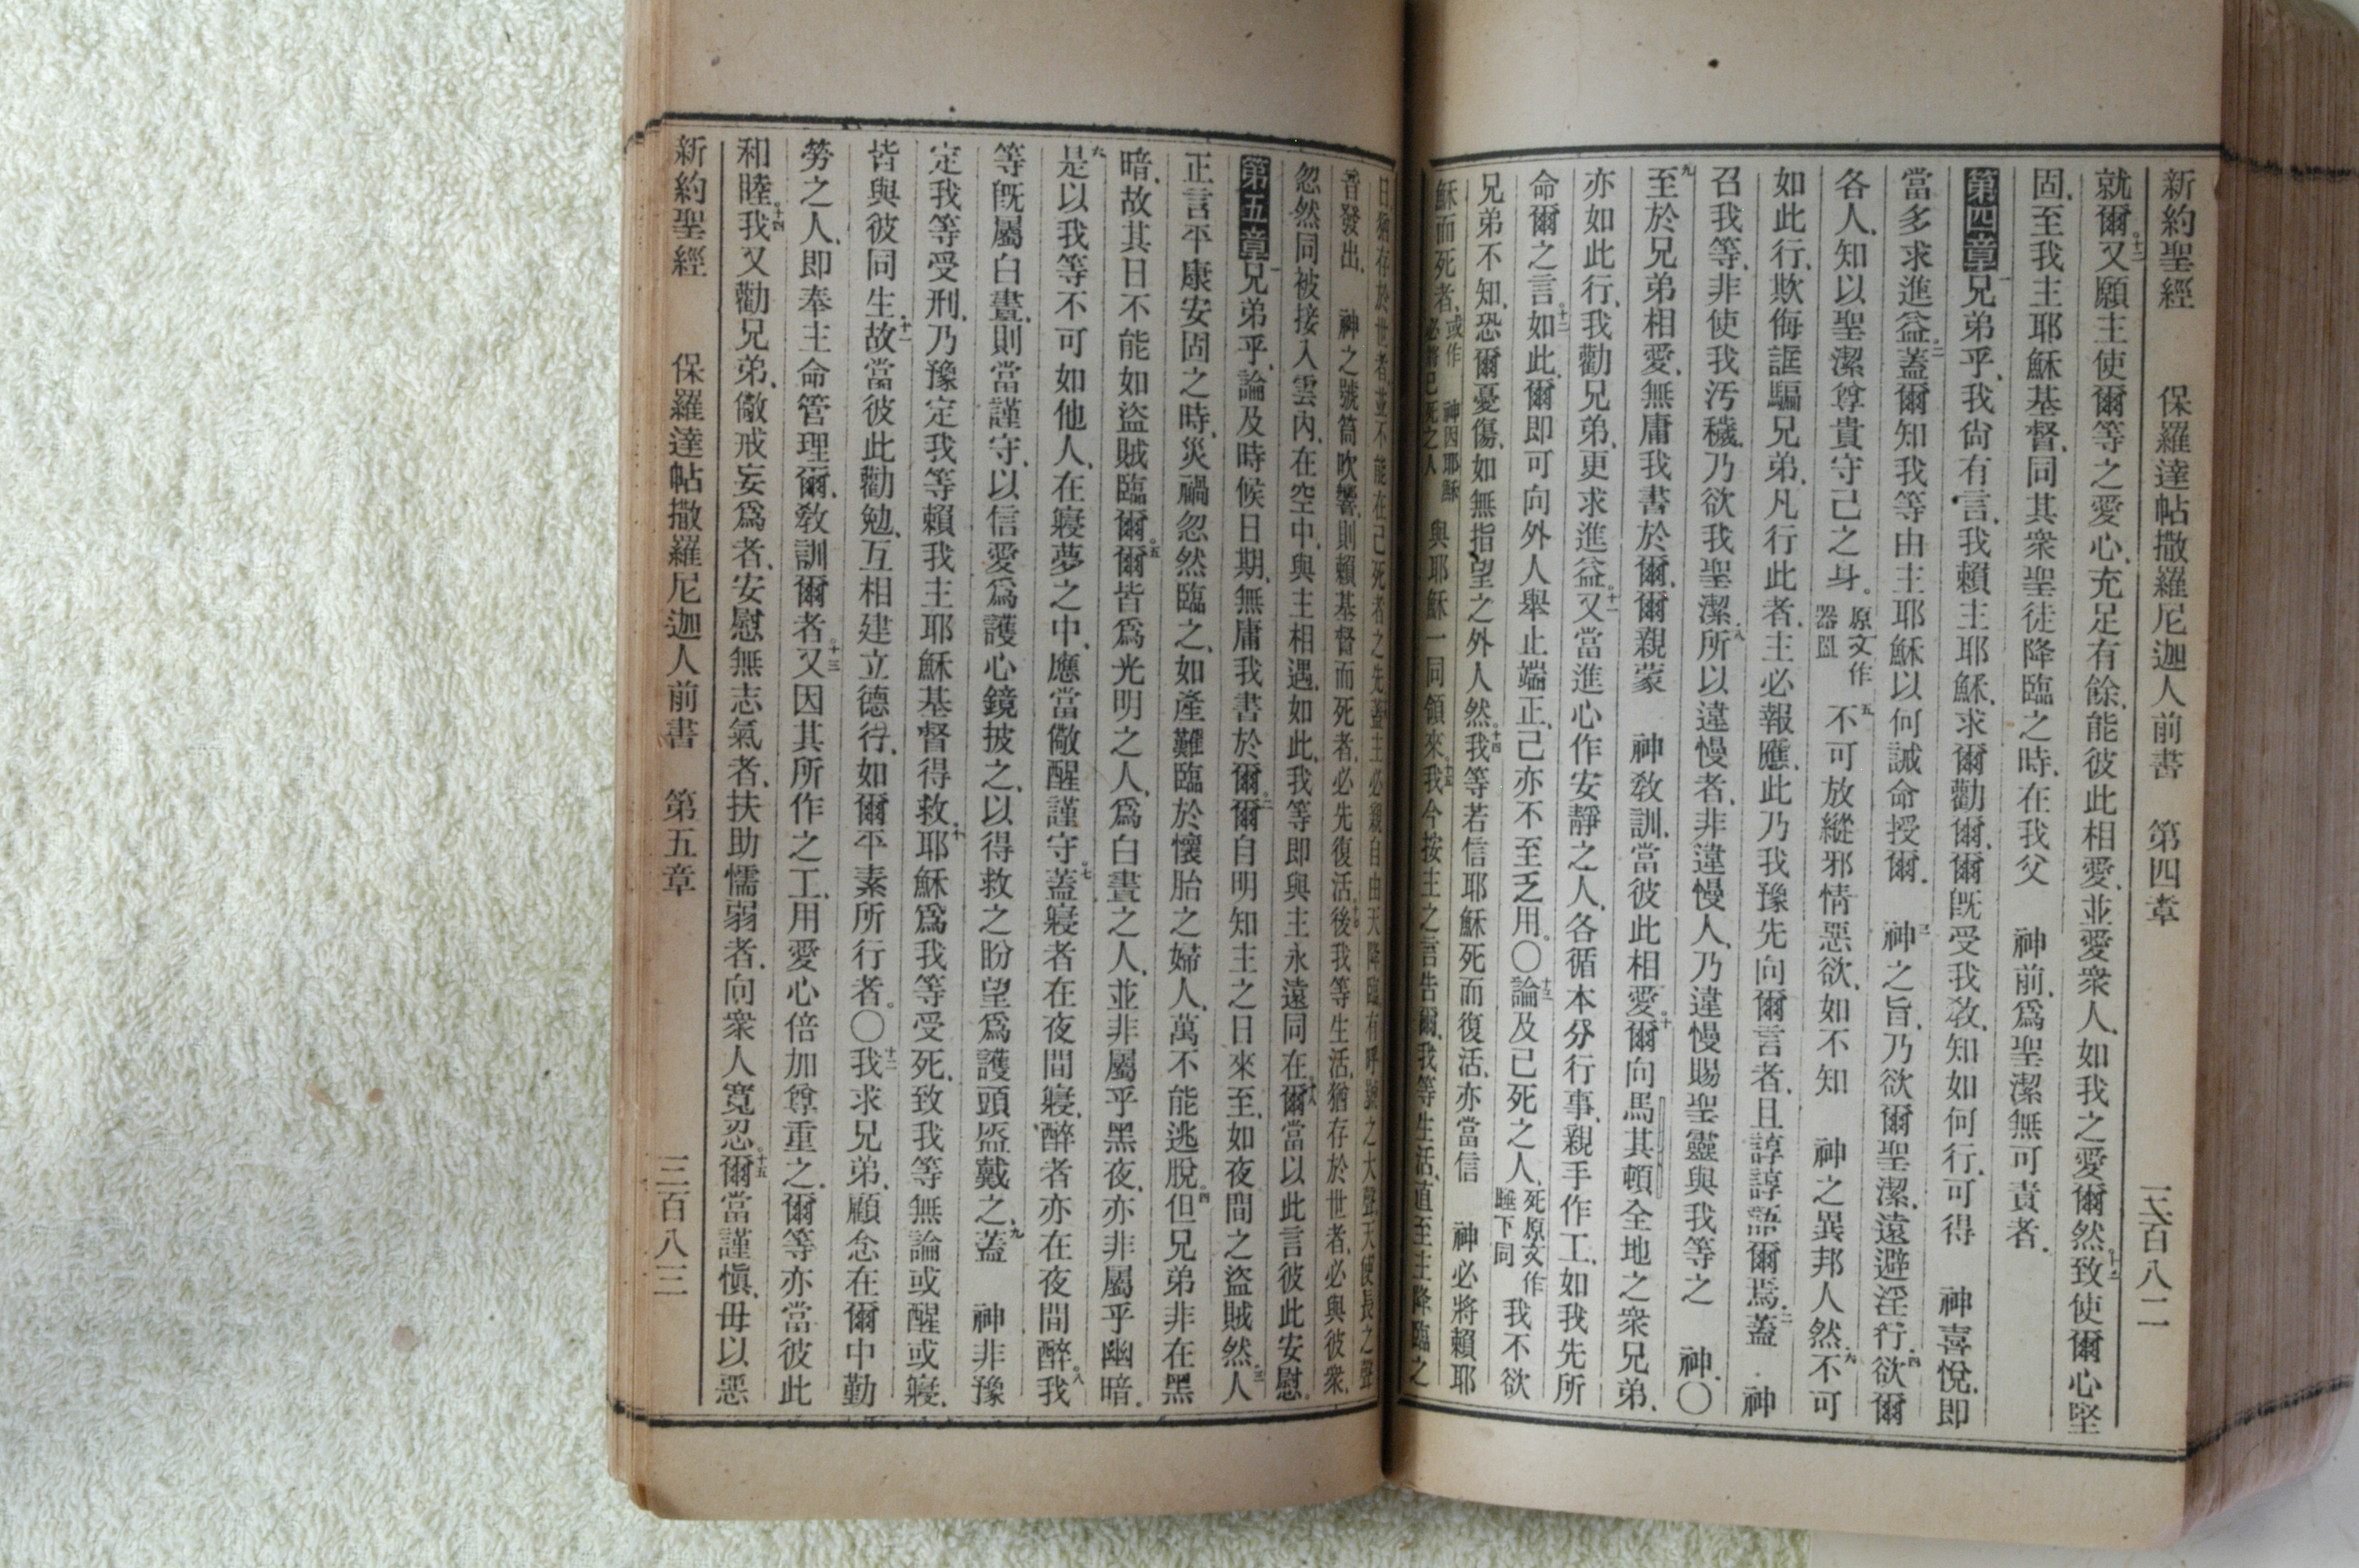 新約聖經 保羅達帖撒羅尼迦人前書 第四章 三百八二
就爾。十二又願主使爾等之愛心、充足有餘、能彼此相愛、並愛衆人、如我之愛爾然。十三致使爾心堅
固、至我主耶穌基督、同其衆聖徒降臨之時、在我父 神前、爲聖潔無可責者。
第四章 一兄弟乎、我尙有言、我賴主耶穌、求爾勸爾、爾旣受我敎、知如何行、可得 神喜悅、卽
當多求進益。二蓋爾知我等由主耶穌以何誡命授爾。三 神之旨、乃欲爾聖潔、遠避淫行。四欲爾
各人、知以聖潔尊貴守己之身。原文作器皿五不可放縱邪情惡欲、如不知 神之異邦人然。六不可
如此行、欺侮誆騙兄弟、凡行此者、主必報應、此乃我豫先向爾言者、且諄諄語爾焉。七蓋 神
召我等、非使我汚穢、乃欲我聖潔。八所以違慢者、非違慢人、乃違慢賜聖靈與我等之 神。〇
九至於兄弟相愛、無庸我書於爾、爾親蒙 神敎訓、當彼此相愛。十爾向馬其頓全地之衆兄弟、
亦如此行、我勸兄弟、更求進益。十一又當進心作安靜之人、各循本分行事、親手作工、如我先所
命爾之言。十二如此、爾卽可向外人舉止端正、己亦不至乏用。〇十三論及已死之人、死原文作睡下同我不欲
兄弟不知、恐爾憂傷、如無指望之外人然。十四我等若信耶穌死而復活、亦當信 神必將賴耶
穌而死者、或作 神因耶穌必將已死之人與耶穌一同領來。十五我今按主之言告爾、我等生活、直至主降臨之
日、猶存於世者、並不能在已死者之先。十六蓋主必親自由天降臨、有呼號之大聲、天使長之聲
音發出、 神之號筒吹響、則賴基督而死者、必先復活。十七後我等生活、猶存於世者、必與彼衆、
忽然同被接入雲內、在空中、與主相遇、如此、我等卽與主永遠同在。十八爾當以此言彼此安慰。
第五章 一兄弟乎、論及時候日期、無庸我書於爾。二爾自明知主之日來至、如夜間之盜賊然。三人
正言平康安固之時、災禍忽然臨之、如產難臨於懷胎之婦人、萬不能逃脫。四但兄弟非在黑
暗、故其日不能如盜賊臨爾。五爾皆爲光明之人、爲白晝之人、並非屬乎黑夜、亦非屬乎幽暗。
六是以我等不可如他人、在寢夢之中、應當儆醒謹守。七蓋寢者在夜間寢、醉者亦在夜間醉。八我
等旣屬白晝、則當謹守、以信愛爲護心鏡披之、以得救之盼望爲護頭盔戴之。九蓋 神非豫
定我等受刑、乃豫定我等賴我主耶穌基督得救。十耶穌爲我等受死、致我等無論或醒或寢、
皆與彼同生。十一故當彼此勸勉、互相建立德行、如爾平素所行者。〇十二我求兄弟、顧念在爾中勤
勞之人、卽奉主命管理爾、敎訓爾者。十三又因其所作之工、用愛心倍加尊重之、爾等亦當彼此
和睦。十四我又勸兄弟、儆戒妄爲者、安慰無志氣者、扶助懦弱者、向衆人寬忍。十五爾當謹愼、毋以惡
新約聖經 保羅達帖撒羅尼迦人前書 第五章 三百八三